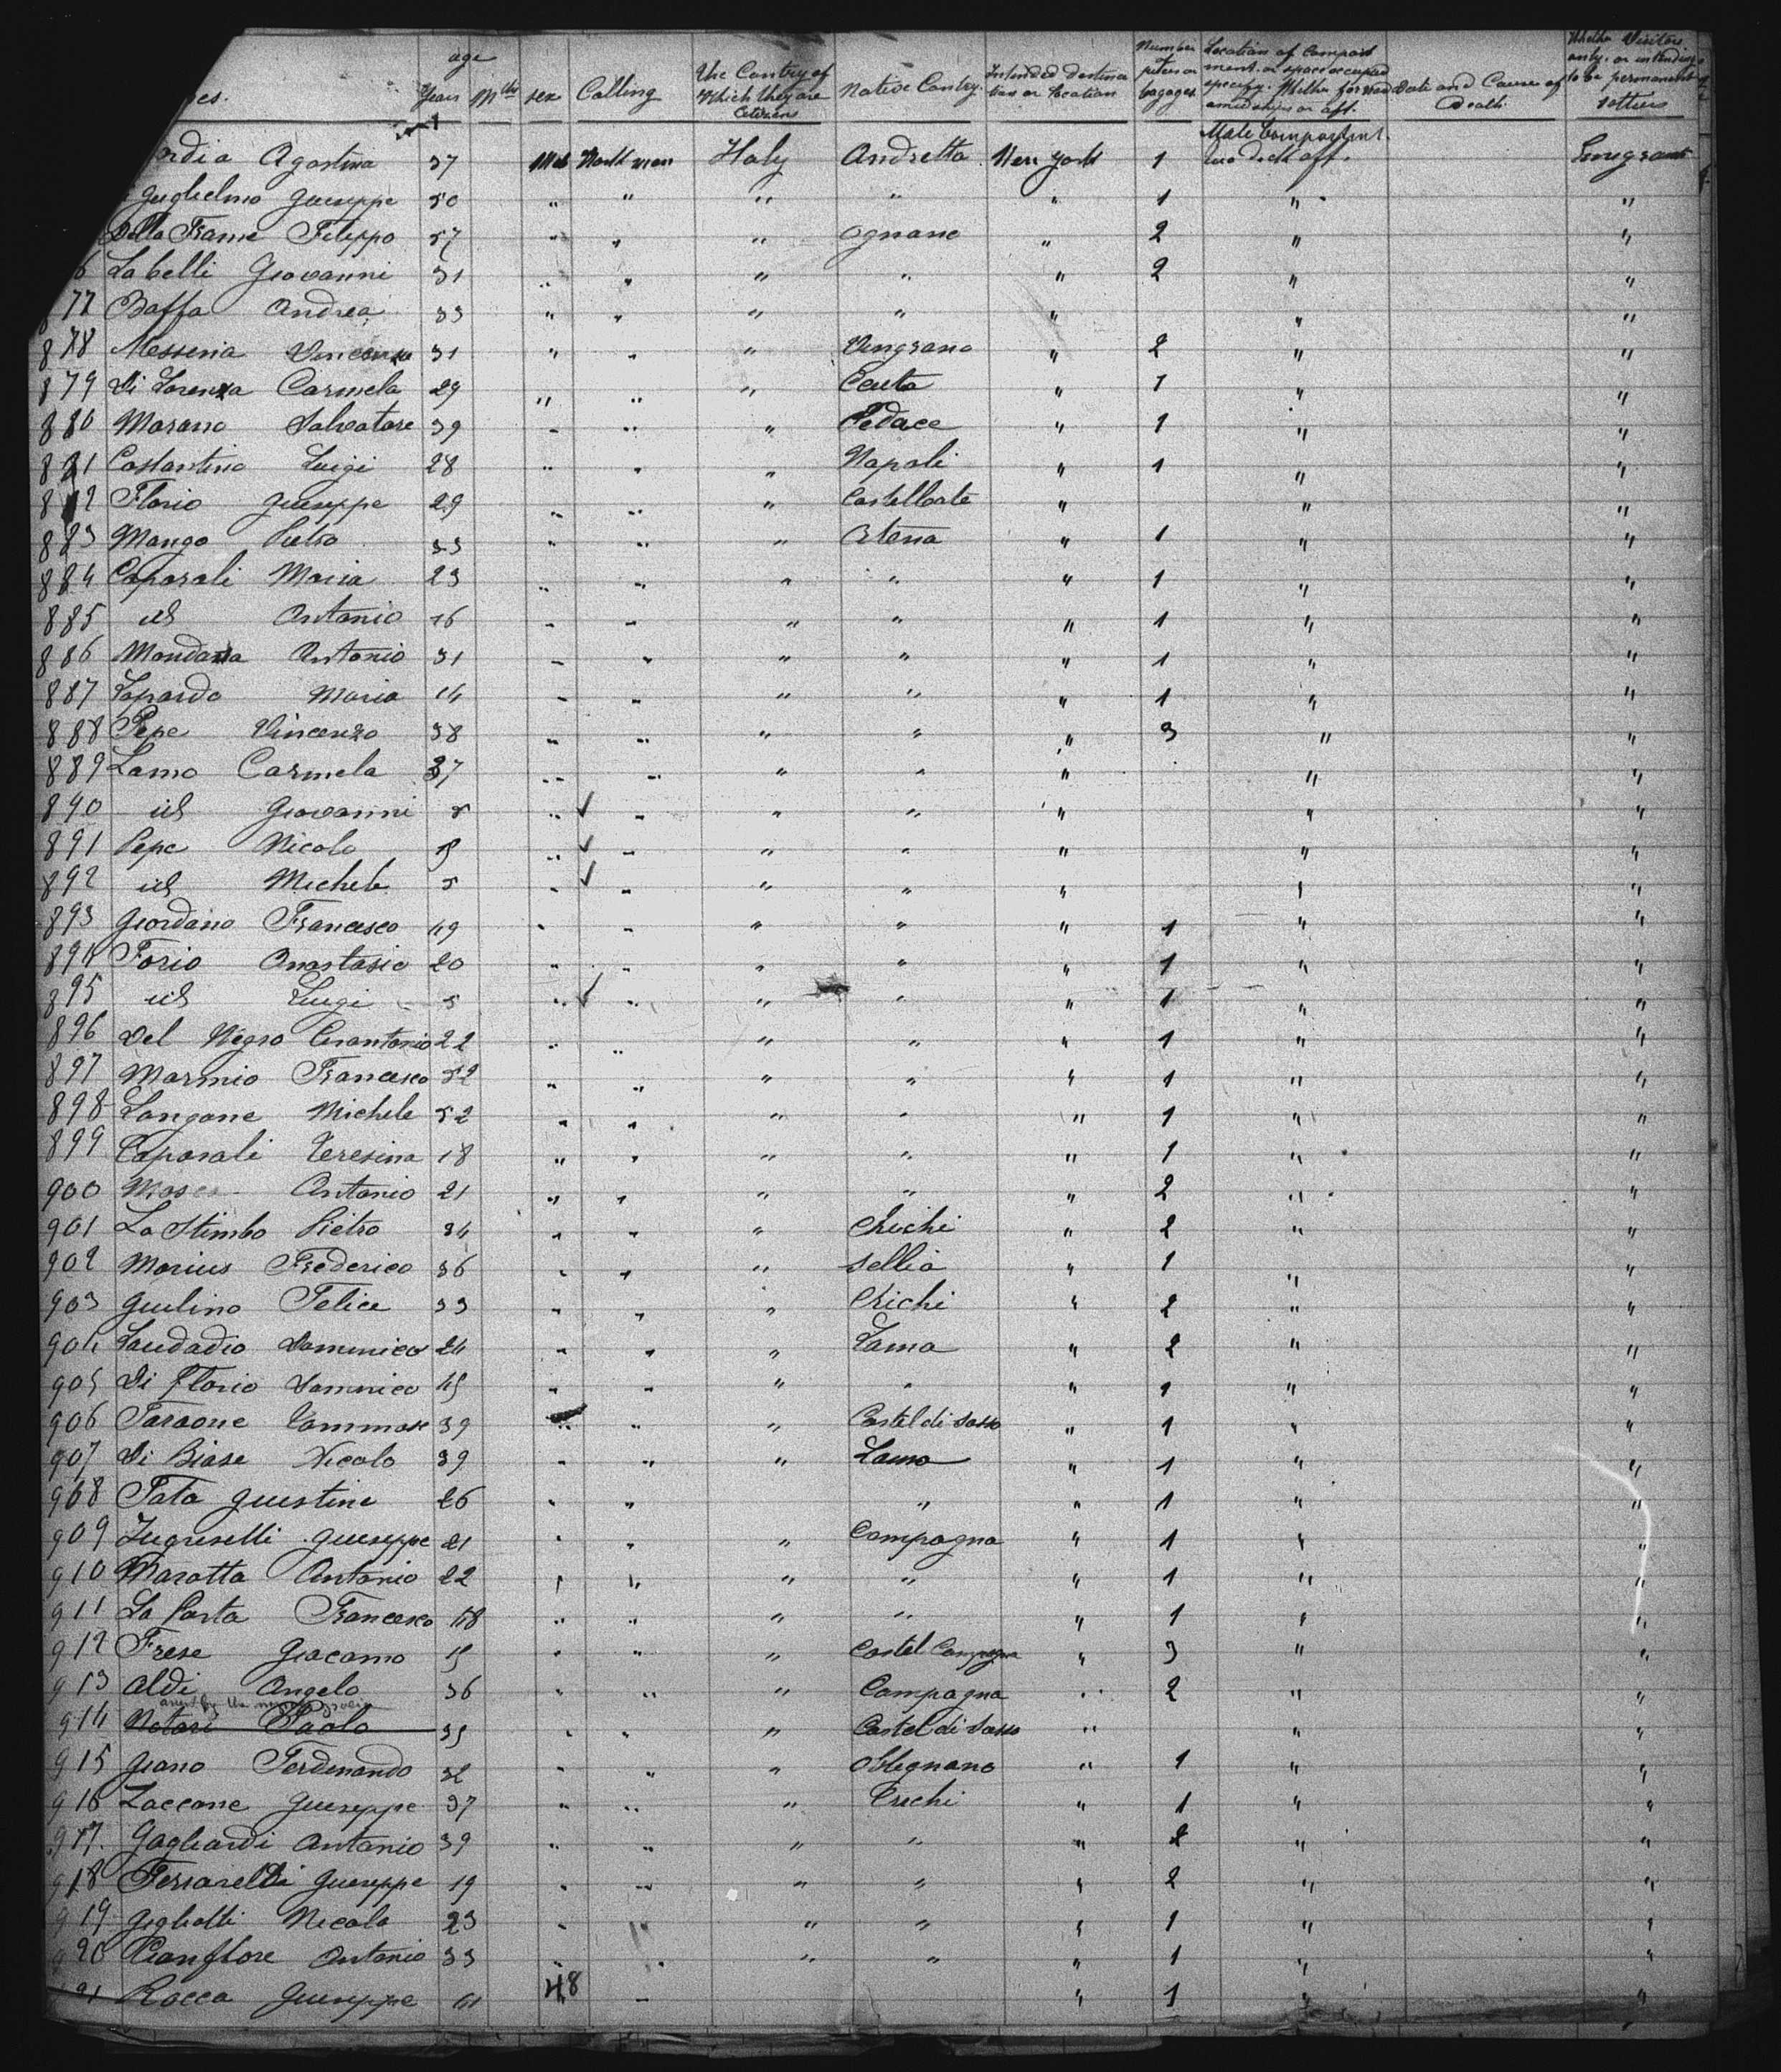 age
Years Mths sex Calling The Contry of Which they are Citizens Native Contry. Intended destination or location Number of pieces or bagages Location of Compartment or space occupied specify. Whether forward amidships or aft. Date and Cause of Death. Whether Visitors only. or intending to be permanent settlers
Agostina 37 Work man Italy Andretta New York 1 Male Compartment. Emigrant
Guglielmo Giuseppe 50 " " " " " 1 " "
Filippo 37 " " " Ognano " 2 " "
Labelli Giovanni 31 " " " " " 2 " "
77 Baffa Andrea 33 " " " " " " "
878 Messina Vincenzo 31 " " " " 2 " "
879 Di Lorenza Carmela 29 " " " " 1 " "
880 Marano Salvatore 39 " " " Pedace " 1 " "
881 Costantino Luigi 28 " " " Napoli " 1 " "
Florio Giuseppe 29 " " " Castelloate " " "
883 Mango Pietro 33 " " " Atena " 1 " "
884 Caporali Maria 23 " " " " " 1 " "
885 id Antonio 16 " " " " " 1 " "
886 Antonio 31 " " " " " 1 " "
887 Lopardo Maria 14 " " " " " 1 " "
888 Pepe Vincenzo 38 " " " " " 3 " "
889 Lamo Carmela 37 " " " " " " "
890 id Giovanni 5 " " " " " " "
891 Pepe Nicola " " " " " " "
892 id Michele 5 " " " " " " "
893 Giordano Francesco 49 " " " " " 1 " "
894 Forio Anastasio 20 " " " " " 1 " "
895 id Luigi 5 " " " " " 1 " "
896 Del Negro 22 " " " " " 1 " "
897 Marmio Francesco 52 " " " " " 1 " "
898 Langone Michele 52 " " " " " 1 " "
899 Caporali Teresina 18 " " " " " 1 " "
900 Antonio 21 " " " " " 2 " "
901 La Stimbo Pietro 34 " " " Crichi " 2 " "
902 Marius Frederico 36 " " " Sellia " 1 " "
903 Giulino Felice 33 " " " Crichi " 2 " "
904 Laudadio Domenico 24 " " " Lama " 2 " "
905 Di Florio Domenico 45 " " " " " 1 " "
906 Faraone Tommaso 39 " " " Castel di Sasso " 1 " "
907 Di Biase Nicola 39 " " " Lama " 1 " "
908 Tata Giustine 26 " " " " 1 " "
909 Giuseppe 21 " " " Campagna " 1 " "
910 Marotta Antonio 22 " " " " " 1 " "
911 La Porta Francesco 48 " " " " " 1 " "
912 Frese Giacomo " " " Castel Campagna " 3 " "
913 Aldi Angelo 36 " " " Campagna " 2 " "
914 Notari Paolo 35 " " " Castel di Sasso " " "
915 Giano Ferdinando 32 " " " " 1 " "
916 Zaccone Giuseppe 37 " " " Crichi " 1 " "
917. Gagliardi Antonio 39 " " " " " 2 " "
918 Ferrarelli Giuseppe 19 " " " " " 2 " "
919 Gigliotti Nicola 23 " " " " " 1 " "
920 Pianflore Antonio 33 " " " " " 1 " "
Rocca Giuseppe 48 " " " 1 " "